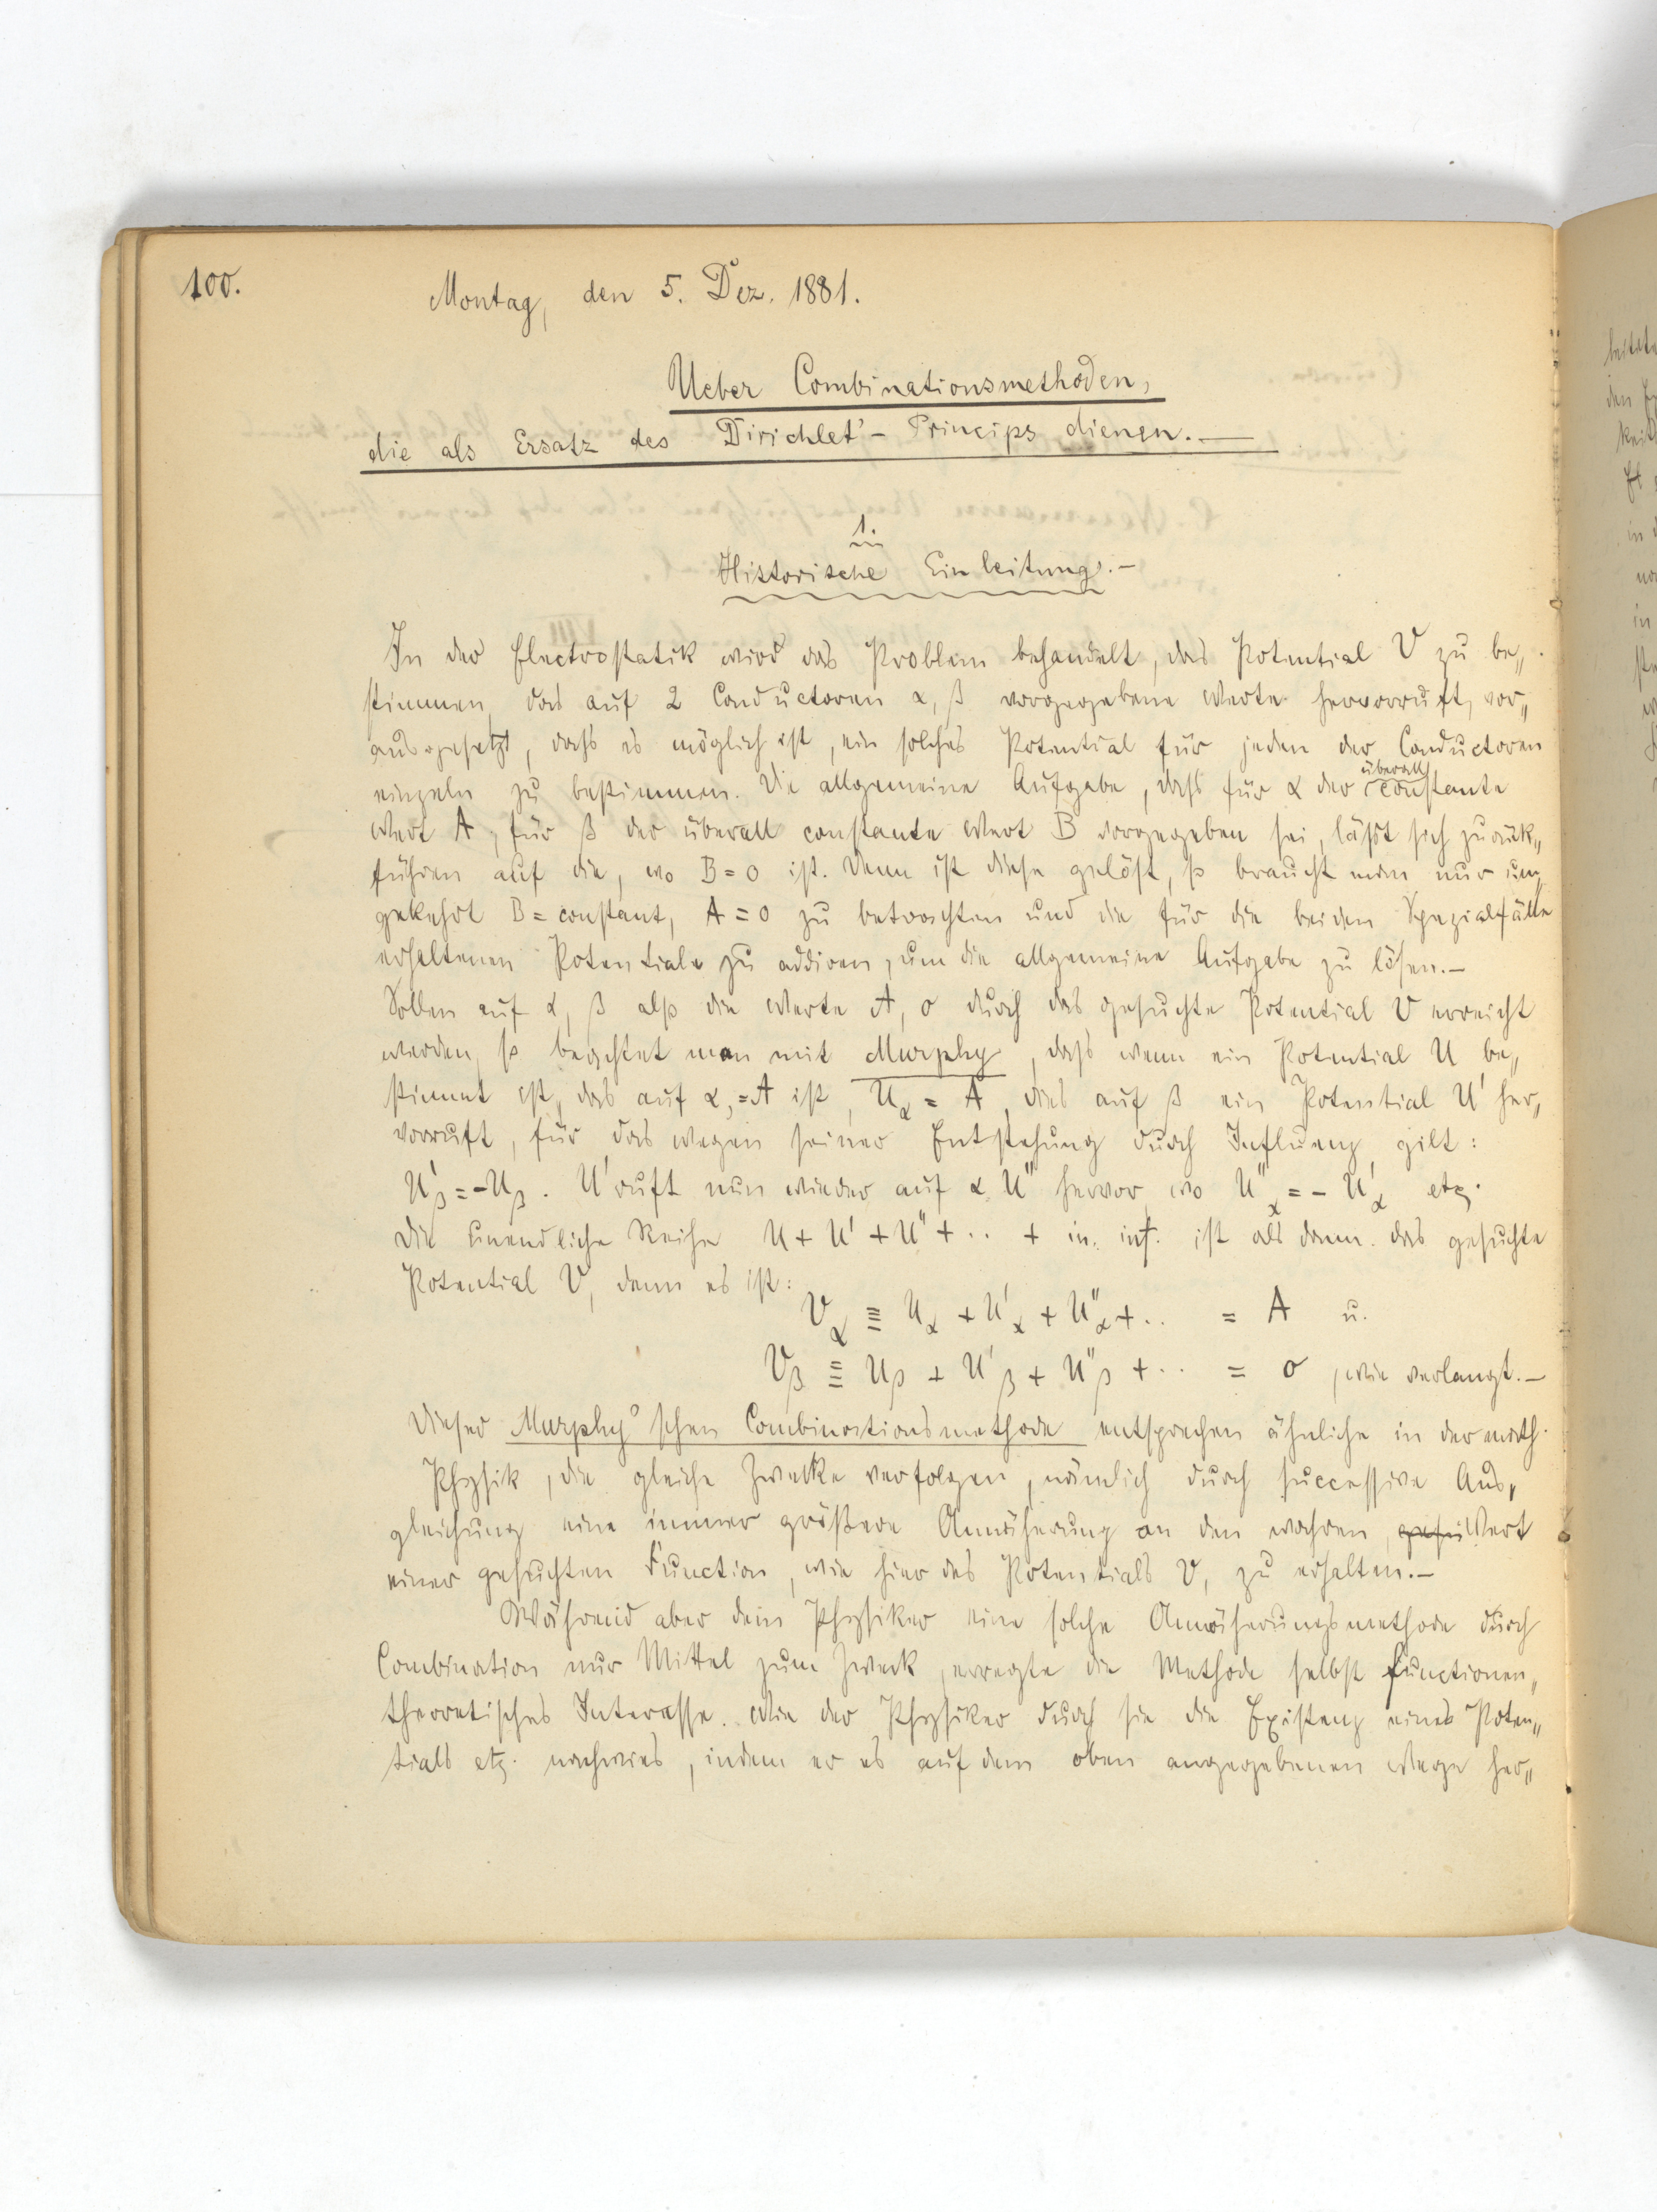 100.
Montag, den 5. Dez. 1881.
Ueber Combinationsmethoden,
die als Ersatz des Dirichlet'-Princips dienen.—
1.
Historische Einleitung.—
In der Electrostatik wird das Problem behandelt, das Potential V zu be„
stimmen, das auf 2 Conductoren α, β vorgegebene Werte hervorruft, vor„
ausgesetzt, dass es möglich ist, ein solches Potential für jeden der Conductoren
einzeln zu bestimmen. Die allgemeine Aufgabe, dass für α der überall constante
Wert A, für β der überall constante Wert B vorgegeben sei, lässt sich zurük„
führen auf die, wo B = 0 ist. Denn ist diese gelöst, so braucht man nur um„
gekehrt B = constant, A = 0 zu betrachten und die für die beiden Spezialfälle
erhaltenen Potentiale zu addiren, um die allgemeine Aufgabe zu lösen.—
Sollen auf α, β also die Werte A, 0 durch das gesuchte Potential V erreicht
werden, so beachtet man mit Murphy, dass wenn ein Potential U be„
stimmt ist, das auf α, =A ist, Uα = A, dies auf β ein Potential U' her„
vorruft, für das wegen seiner Entstehung durch Influenz gilt:
U'β = -Uβ. U' ruft nun wieder auf α U'' hervor, wo U''α = - U'α etz.
Die unendliche Reihe U + U' + U'' + .. + in. inf. ist als dann das gesuchte
Potential V, denn es ist:
Vα ≡ Uα + U'α + U''α + .. = A u.
Vβ ≡ Uβ + U'β + U''β + .. = 0, wie verlangt.—
Dieser Murphy'schen Combinationsmethode entsprechen ähnliche in der math.
Physik, die gleiche Zwecke verfolgen, nämlich durch successive Aus„
gleichung eine immer grössere Annäherung an den wahren, Wert
einer gesuchten Function, wie hier des Potentials V, zu erhalten.—
Während aber dem Physiker eine solche Annäherungsmethode durch
Combination nur Mittel zum Zweck, erregte die Methode selbst functionen„
theoretisches Interesse. Wie der Physiker durch sie die Existenz eines Poten„
tials etz. nachwies, indem er es auf dem oben angegebenen Wege her„